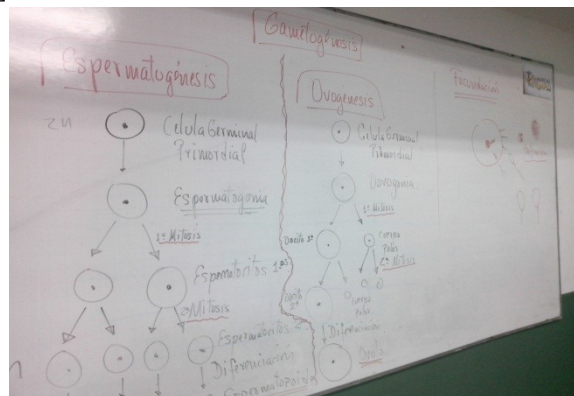 Gametogenesis
Espermatogénesis
2n
Celula Germinal
Primordial
Espermatogonia
1ª Mitosis
Espermatocitos 1ºs
2ª Mitosis
Espermatocitos 2
Diferenciación
Espermatozoide
n
Ovogenesis
Celula Germinal
Primordial
Ovogonia
1ª Mitosis
Ovocito 1º
Cuerpo
Polar
2ª Mitosis
Ovocito
2º
Cuerpo
Polar
Diferenciación
Ovulo
Fecundación